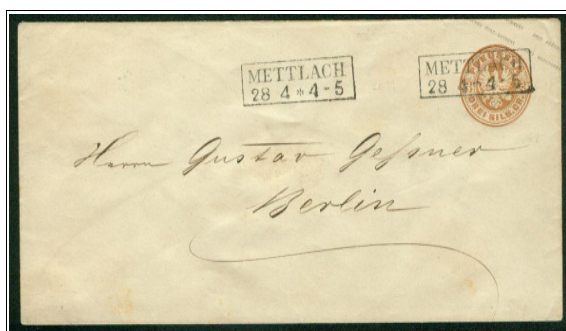 METTLACH
28 4 * 4-5
MET
28 4 * 4-5
DREI SILB. GR.
Herrn Gustav Gessner
Berlin